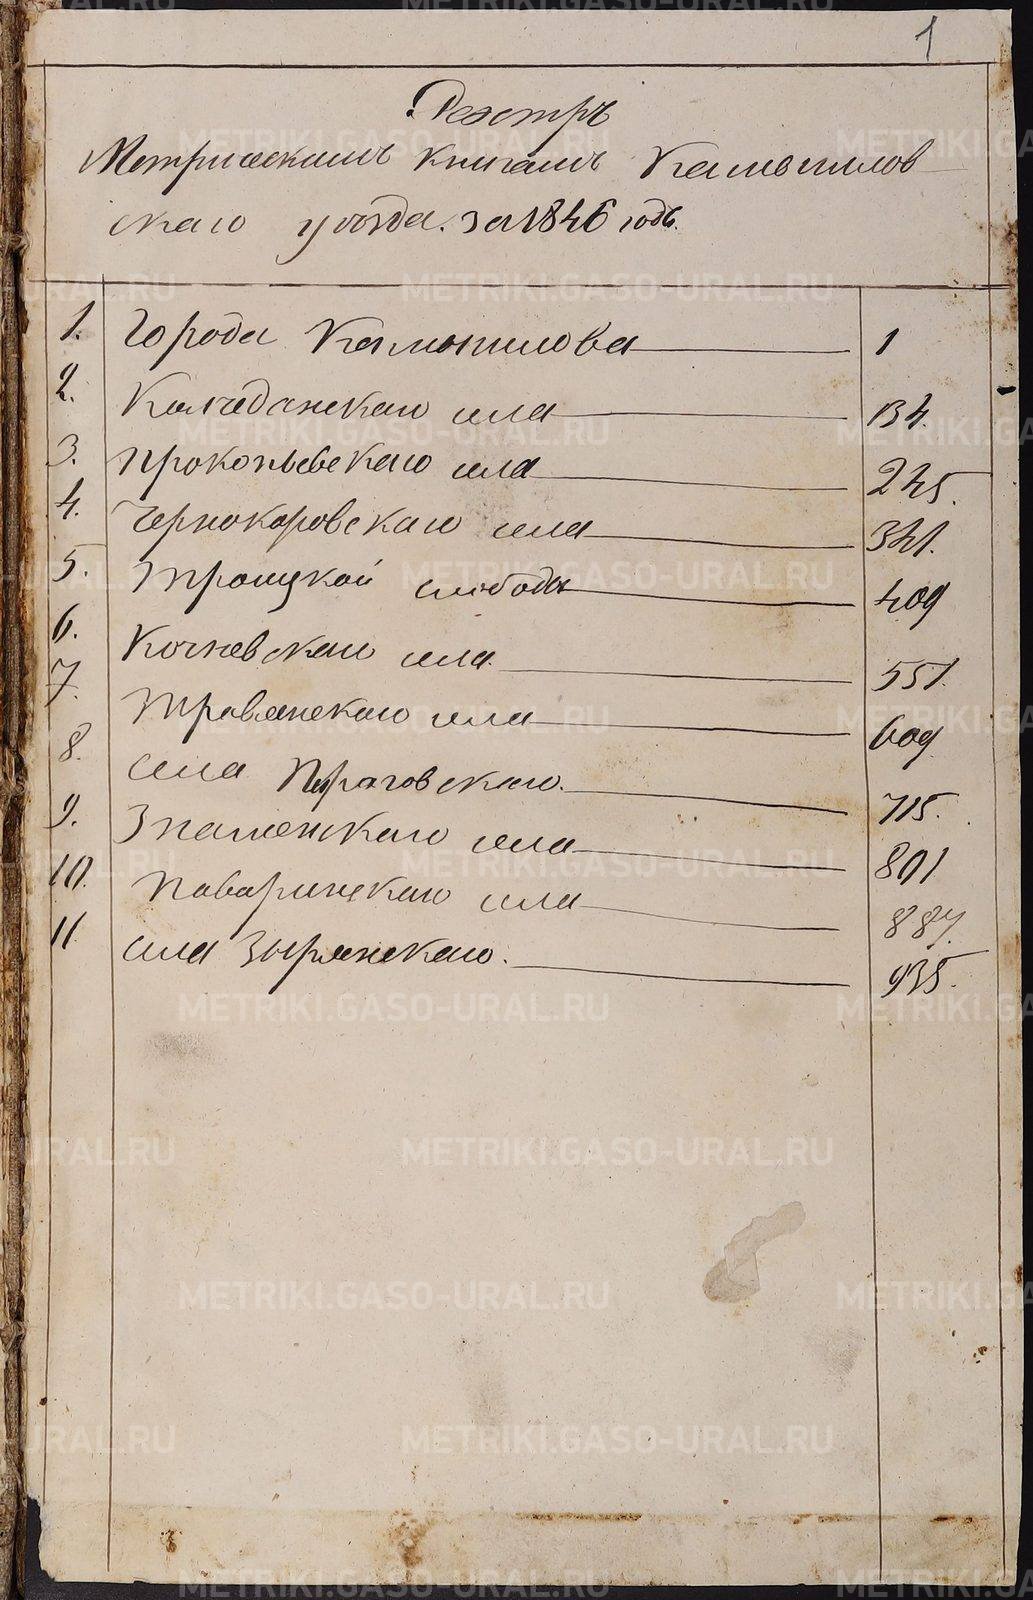 1
Реэстръ
Метрическимъ книгамъ Камышлов
скаго уѣзда. за 1846 годъ.
1. Города Камышлова 1
2. Колчеданскаго села 134.
3. Прокопьевскаго села 245.
4. Чернокоровскаго села 341.
5. Троицкой слободы 409
6. Кочневскаго села 551.
7. Травянскаго села 609.
8. села 715.
9. Знаменскаго села 801
10. Паваринскаго села 887.
11. села Зырянскаго. 935.
METRIKI.GASO-URAL.RU